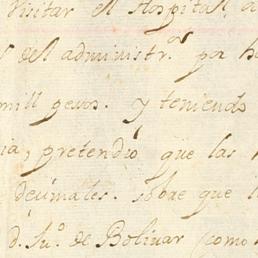 Visitar el Hospital, a
del administr.ᵒʳ por h
mill pesos. y teniendo
ia, pretendió que las
decimales. sobre que
d. Ju.º de Bolivar (como